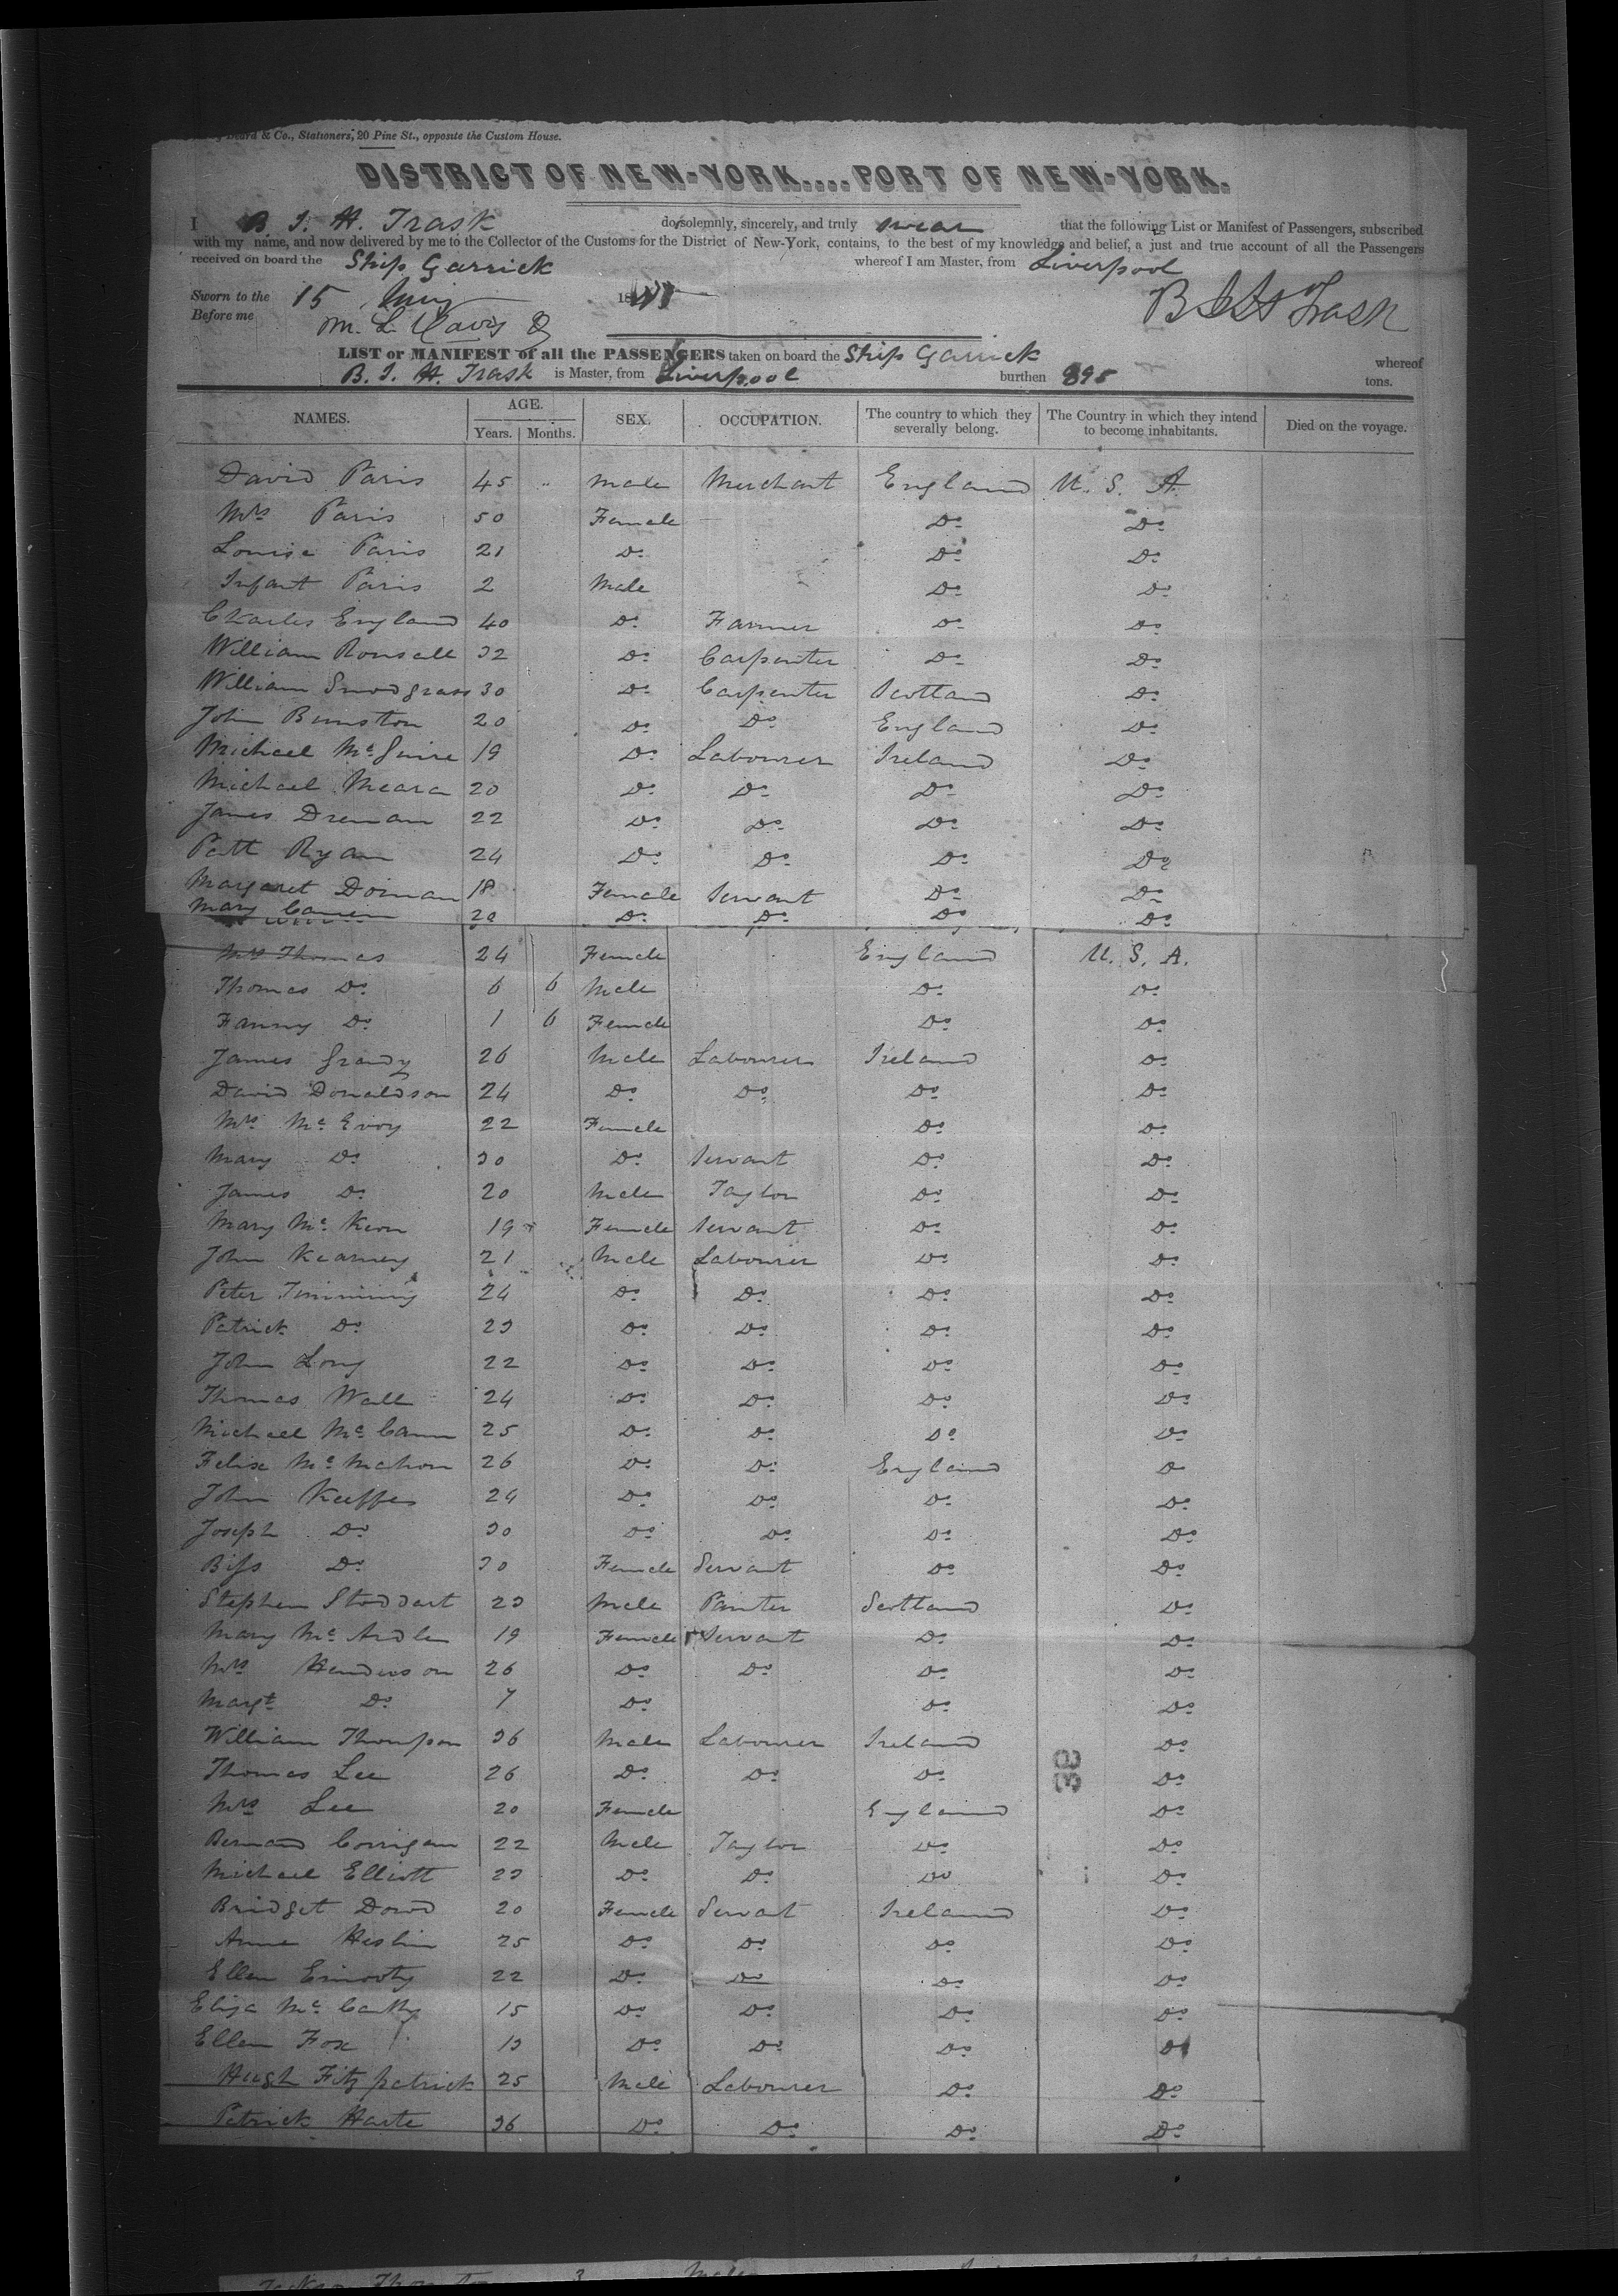 Beard & Co., Stationers, 20 Pine St., opposite the Custom House.
DISTRICT OF NEW-YORK....PORT OF NEW-YORK.
I B. I. H. Trask do solemnly, sincerely, and truly swear that the following List or Manifest of Passengers, subscribed
with my name, and now delivered by me to the Collector of the Customs for the District of New-York, contains, to the best of my knowledge and belief, a just and true account of all the Passengers
received on board the Ship Garrick whereof I am Master, from Liverpool
Sworn to the 15 18
Before me M. L. Davis
B I H Trask
LIST or MANIFEST of all the PASSENGERS taken on board the Ship Garrick whereof
B. I. H. Trask is Master, from Liverpool burthen 895 tons.
NAMES. AGE. Years. Months. SEX. OCCUPATION. The country to which they severally belong. The Country in which they intend to become inhabitants. Died on the voyage.
David Paris 45 " Male Merchant England U. S. A.
Mrs Paris 50 Female Do Do
Louisa Paris 21 Do Do Do
Infant Paris 2 Male Do Do
Charles England 40 Do Farmer Do Do
William Ronsall 32 Do Carpenter Do Do
William Snodgrass 30 Do Carpenter Scotland Do
John Bunston 20 Do Do England Do
Michael McGuire 19 Do Labourer Ireland Do
Michael Meara 20 Do Do Do Do
James Drenan 22 Do Do Do Do
Patt Ryan 24 Do Do Do Do
Margaret Doman 18 Female Servant Do Do
Mary 20 Do Do Do Do
Mrs Thomas 24 Female England U. S. A.
Thomas Do 6 6 Male Do Do
Fanny Do 1 6 Female Do Do
James Grandy 26 Male Labourer Ireland Do
David Donaldson 24 Do Do Do Do
Mrs McEvoy 22 Female Do Do
Mary Do 30 Do Servant Do Do
James Do 20 Male Taylor Do Do
Mary McKeon 19 Female Servant Do Do
John Kearney 21 Male Labourer Do Do
Peter Timming 24 Do Do Do Do
Patrick Do 23 Do Do Do Do
John Long 22 Do Do Do Do
Thomas Wall 24 Do Do Do Do
Michael McCann 25 Do Do Do Do
Felix McMahon 26 Do Do England Do
John Keeffes 24 Do Do Do Do
Joseph Do 30 Do Do Do Do
Biss Do 30 Female Servant Do Do
Stephen Stoddart 23 Male Painter Scotland Do
Mary McArdle 19 Female Servant Do Do
Mrs Henderson 26 Do Do Do Do
Margt Do 7 Do Do Do
William Thompson 36 Male Labourer Ireland Do
Thomas Lee 26 Do Do Do Do
38
Mrs Lee 20 Female England Do
Bernard Corrigan 22 Male Taylor Do Do
Michael Elliott 23 Do Do Do Do
Bridget Dowd 20 Female Servant Ireland Do
Anne Heslin 25 Do Do Do Do
Ellen 22 Do Do Do Do
Eliza McCarthy 15 Do Do Do Do
Ellen Fox 13 Do Do Do Do
Hugh Fitzpatrick 25 Male Labourer Do Do
Patrick Harte 36 Do Do Do Do